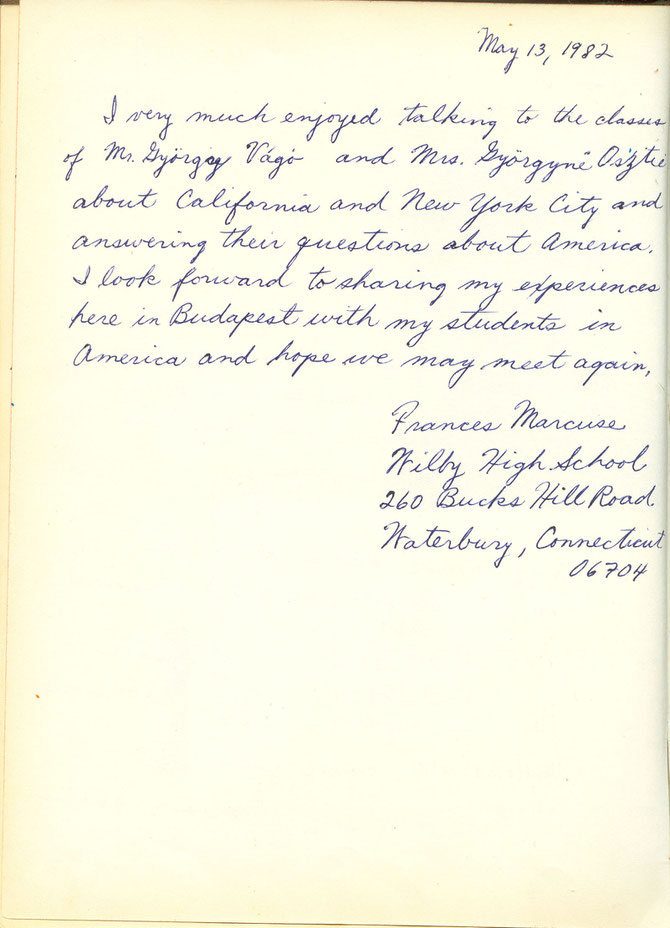 May 13, 1982
I very much enjoyed talking to the classes
of Mr. György Vágó and Mrs. Györgyné
about California and New York City and
answering their questions about America.
I look forward to sharing my experiences
here in Budapest with my students in
America and hope we may meet again.
Frances Marcuse
Wilby High School
260 Bucks Hill Road
Waterbury, Connecticut
06704